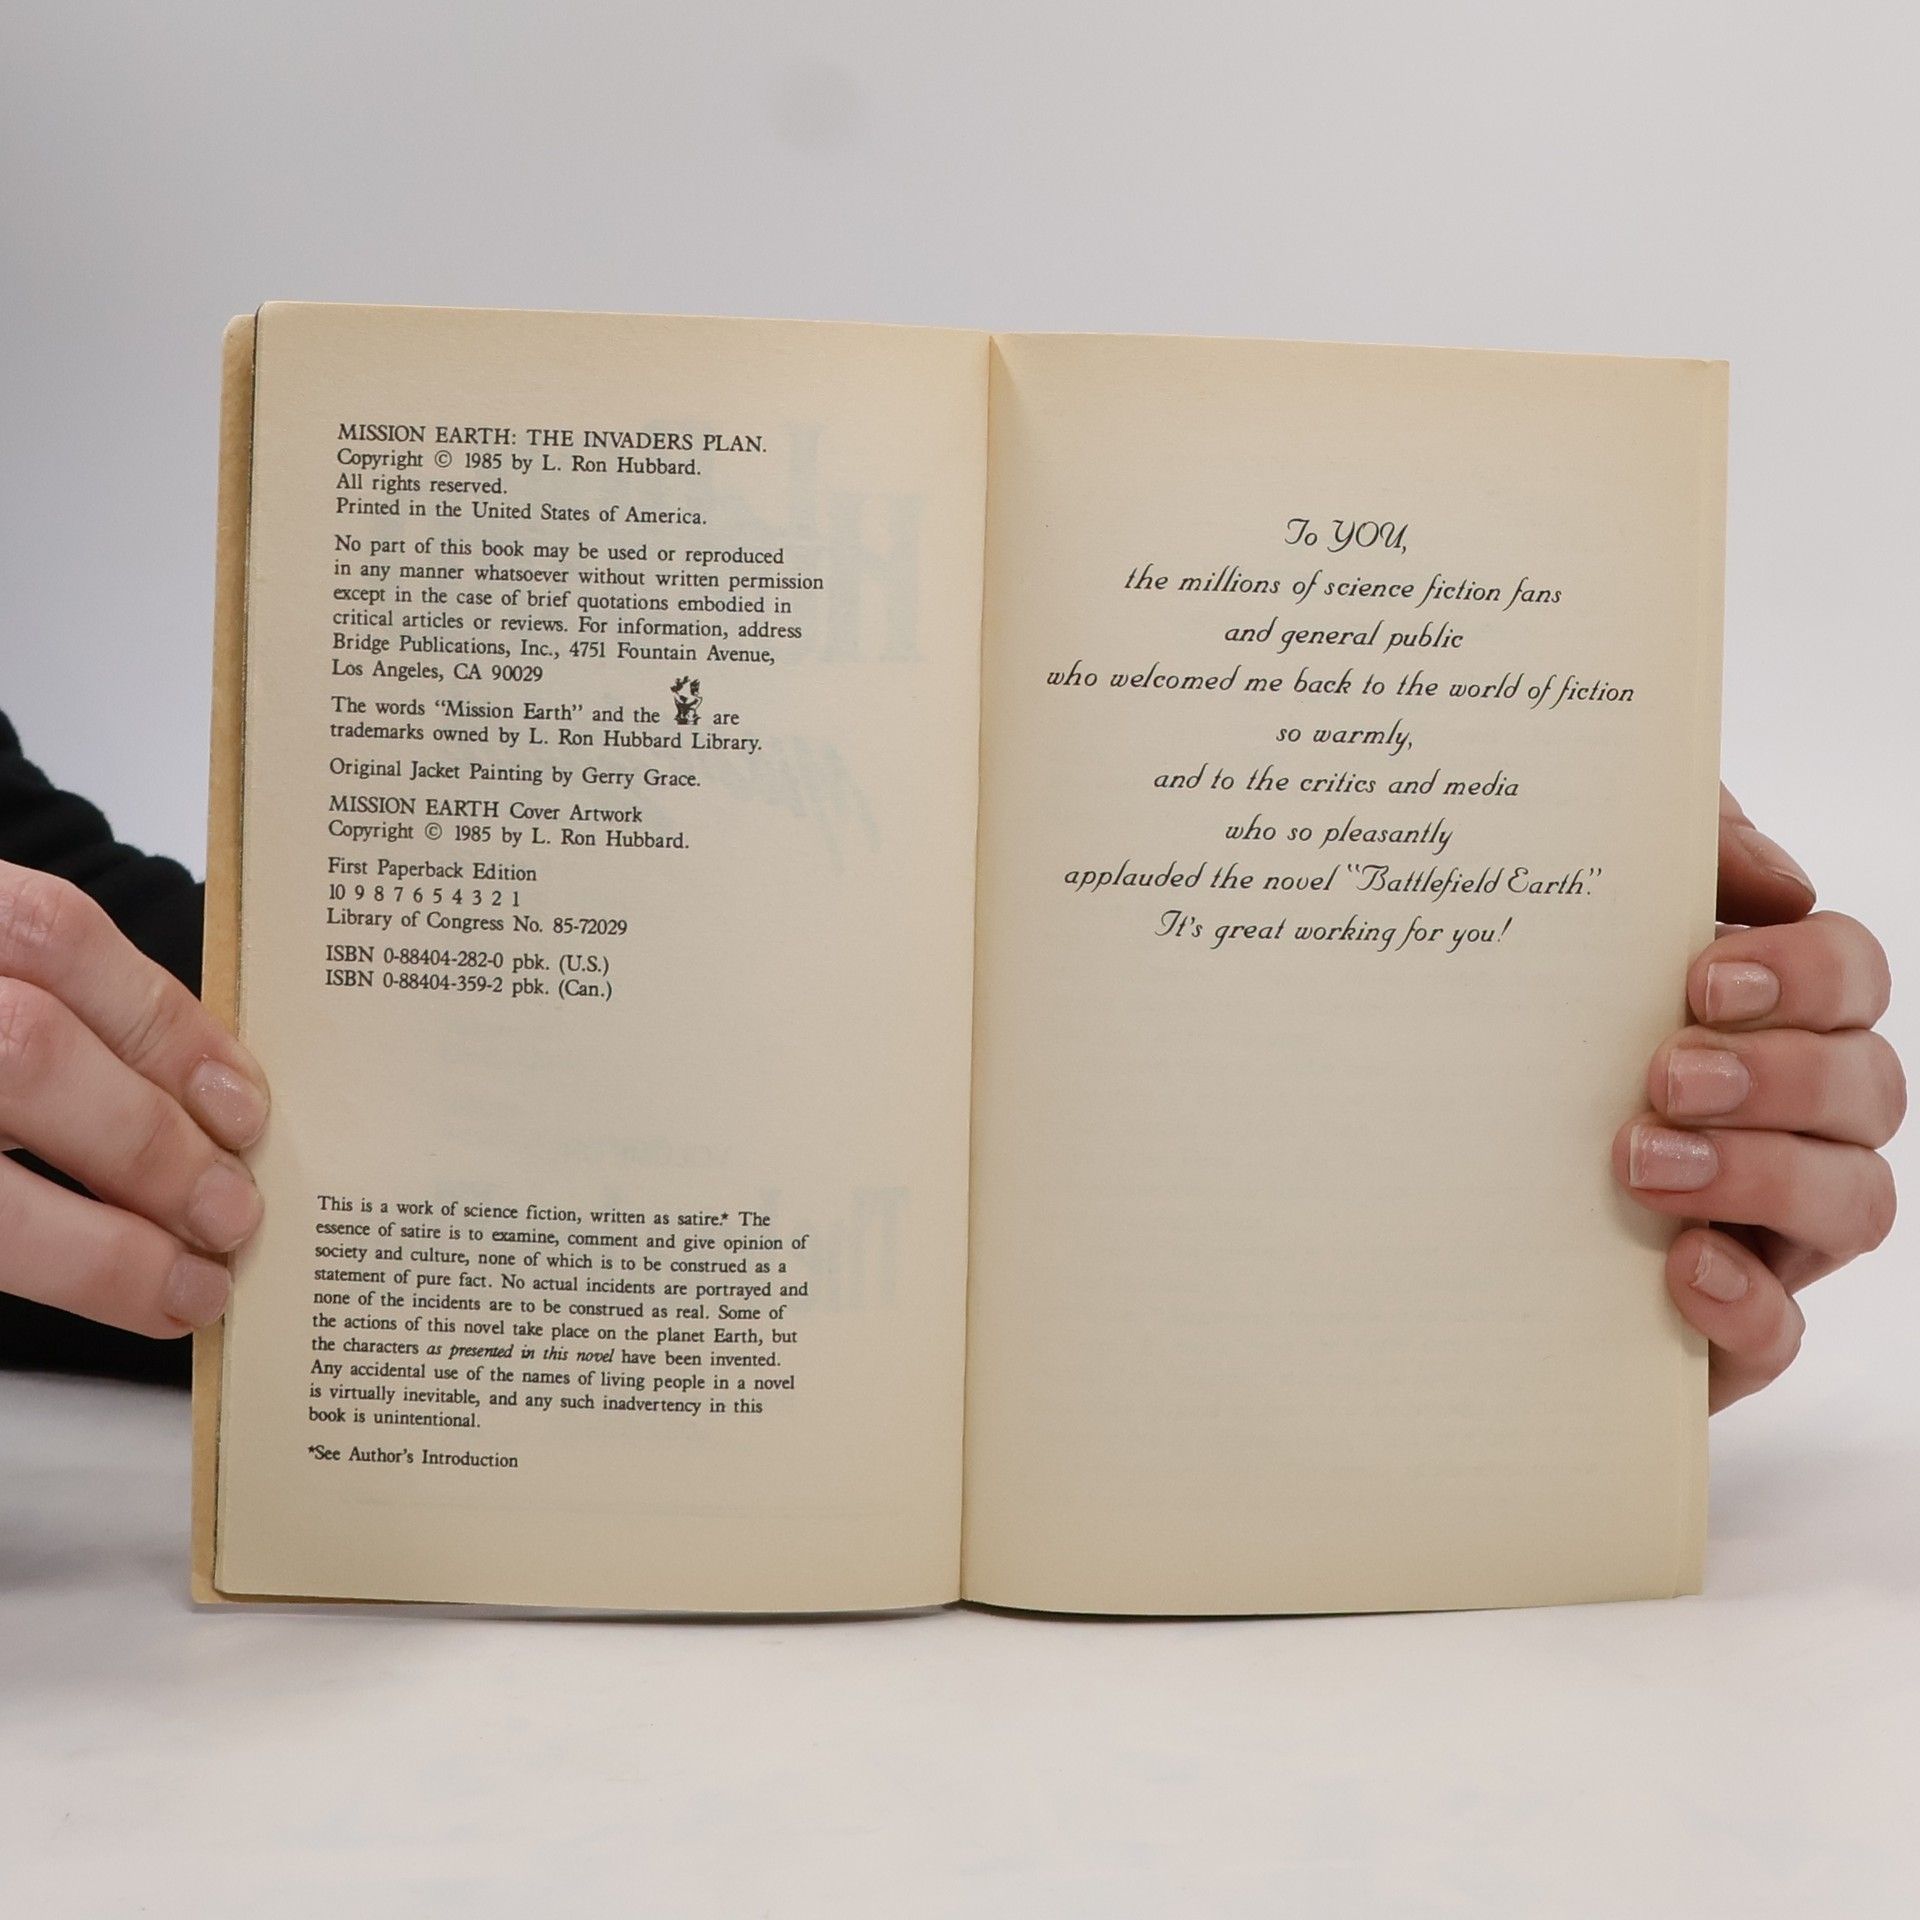 MISSION EARTH: THE INVADERS PLAN.
Copyright © 1985 by L. Ron Hubbard.
All rights reserved.
Printed in the United States of America.
No part of this book may be used or reproduced
in any manner whatsoever without written permission
except in the case of brief quotations embodied in
critical articles or reviews. For information, address
Bridge Publications, Inc., 4751 Fountain Avenue,
Los Angeles, CA 90029
The words “Mission Earth” and the are
trademarks owned by L. Ron Hubbard Library.
Original Jacket Painting by Gerry Grace.
MISSION EARTH Cover Artwork
Copyright © 1985 by L. Ron Hubbard.
First Paperback Edition
10 9 8 7 6 5 4 3 2 1
Library of Congress No. 85-72029
ISBN 0-88404-282-0 pbk. (U.S.)
ISBN 0-88404-359-2 pbk. (Can.)
This is a work of science fiction, written as satire.* The
essence of satire is to examine, comment and give opinion of
society and culture, none of which is to be construed as a
statement of pure fact. No actual incidents are portrayed and
none of the incidents are to be construed as real. Some of
the actions of this novel take place on the planet Earth, but
the characters as presented in this novel have been invented.
Any accidental use of the names of living people in a novel
is virtually inevitable, and any such inadvertency in this
book is unintentional.
*See Author’s Introduction
To YOU,
the millions of science fiction fans
and general public
who welcomed me back to the world of fiction
so warmly,
and to the critics and media
who so pleasantly
applauded the novel “Battlefield Earth.”
It’s great working for you!